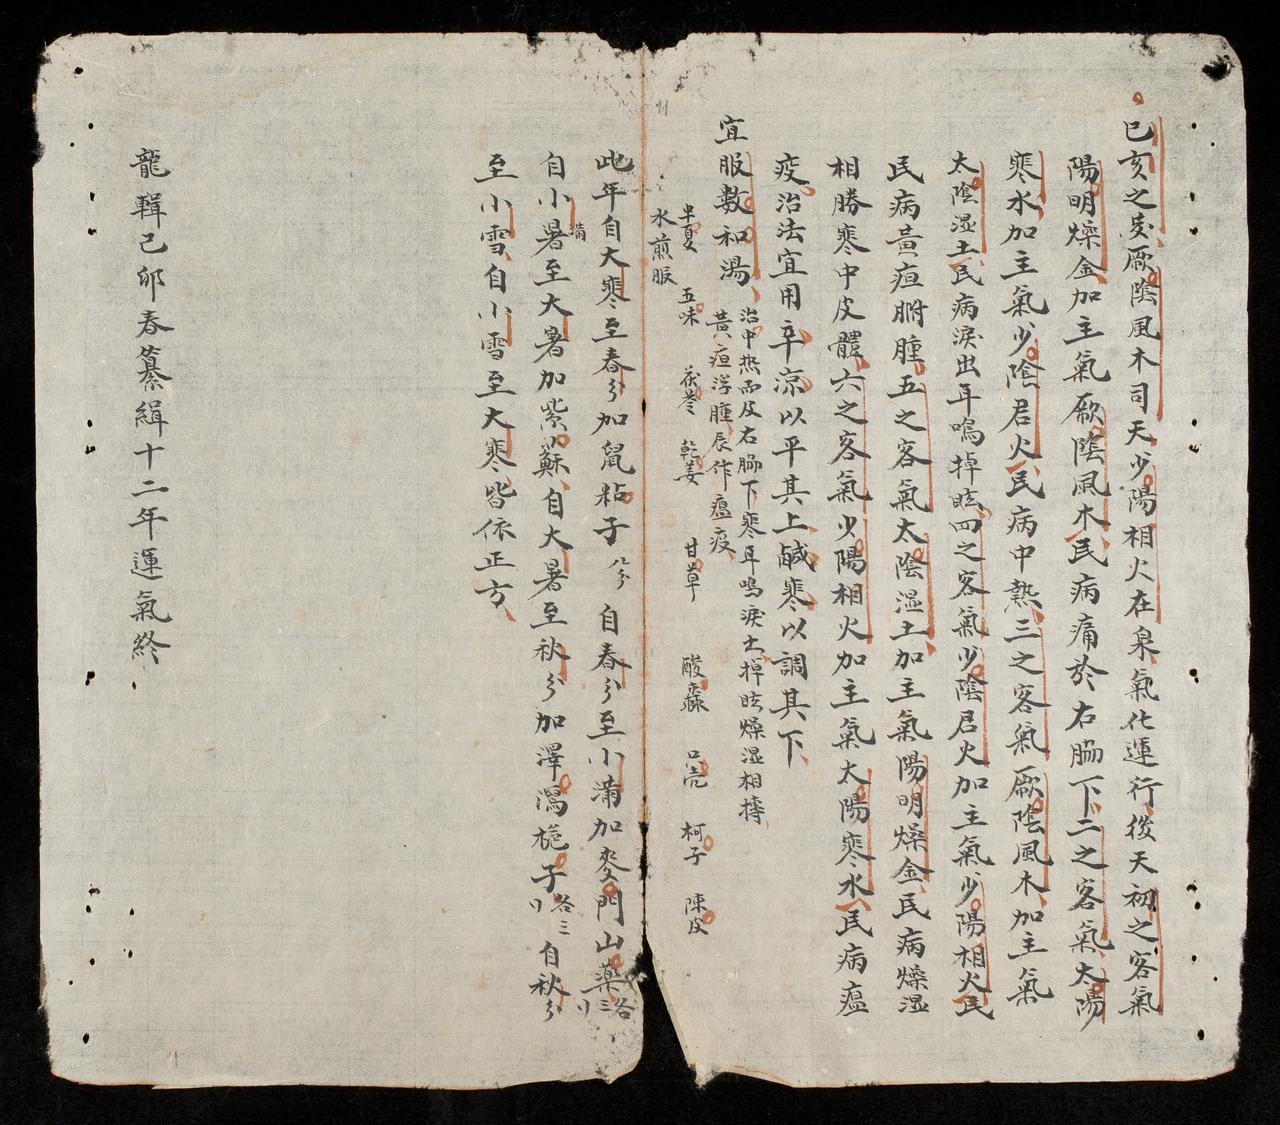 巳亥之歲厥陰風木司天少陽相火在泉氣化運行後天初之客氣
陽明燥金加主氣厥陰風木民病痛於右脇下二之客氣太陽
寒水加主氣少陰君火民病中熱三之客氣厥陰風木加主氣
太陰湿土民病淚出耳鳴掉眩四之客氣少陰君火加主氣少陽相火民
民病黃疸胕腫五之客氣太陰湿土加主氣陽明燥金民病燥湿
相勝寒中皮體六之客氣少陽相火加主氣太陽寒水民病瘟
疫治法宜用辛凉以平其上鹹寒以調其下
宜服數和湯
治中熱而及右脇下寒耳鳴淚出掉眩燥湿相摶
黃疸浮腫辰作瘟疫
半夏 五味 茯苓 乾姜 甘草 酸棗 只壳 柯子 陳皮
水煎服
此年自大寒至春分加鼠粘子八分 自春分至小蒲加麥門山藥各三刂
自小滿暑至大暑加紫蘇自大暑至秋分加澤瀉梔子各三刂 自秋分
至小雪自小雪至大寒皆依正方
龍輯己卯春纂緝十二年運氣終